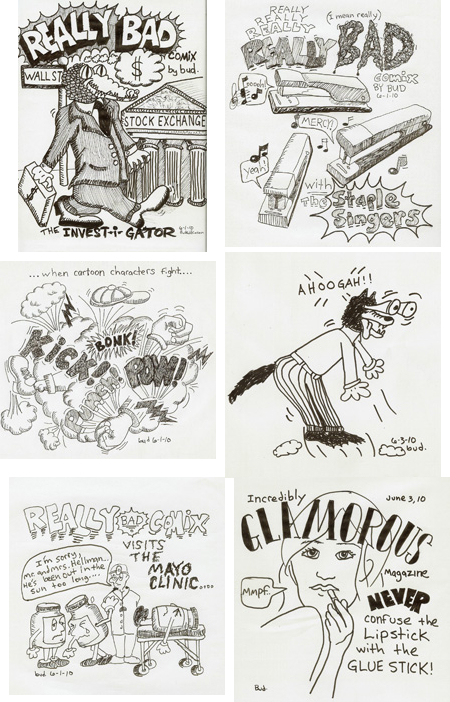 REALLY BAD
COMIX
by bud.
$
WALL ST
STOCK EXCHANGE
6-1-10
THE INVEST-i-GATOR
REALLY
REALLY
REALLY
(I mean really)
REALLY BAD
COMIX
BY BUD
6-1-10
MERCY!
Yeah!
with
the Staple
Singers
...when cartoon characters fight....
KICK!
BONK!
POW!
PUNCH!
bud 6-1-10
AHOOGAH!!
6-3-10
bud.
REALLY BAD COMIX
VISITS
THE
MAYO
CLINIC....
I'm sorry,
mr. and mrs. Hellman...
He's been out in the
sun too long....
bud 6-1-10
Incredibly
June 3, 10
GLAMOROUS
Magazine
MMPF..
NEVER
confuse the
Lipstick
with the
GLUE STICK!
Bud.